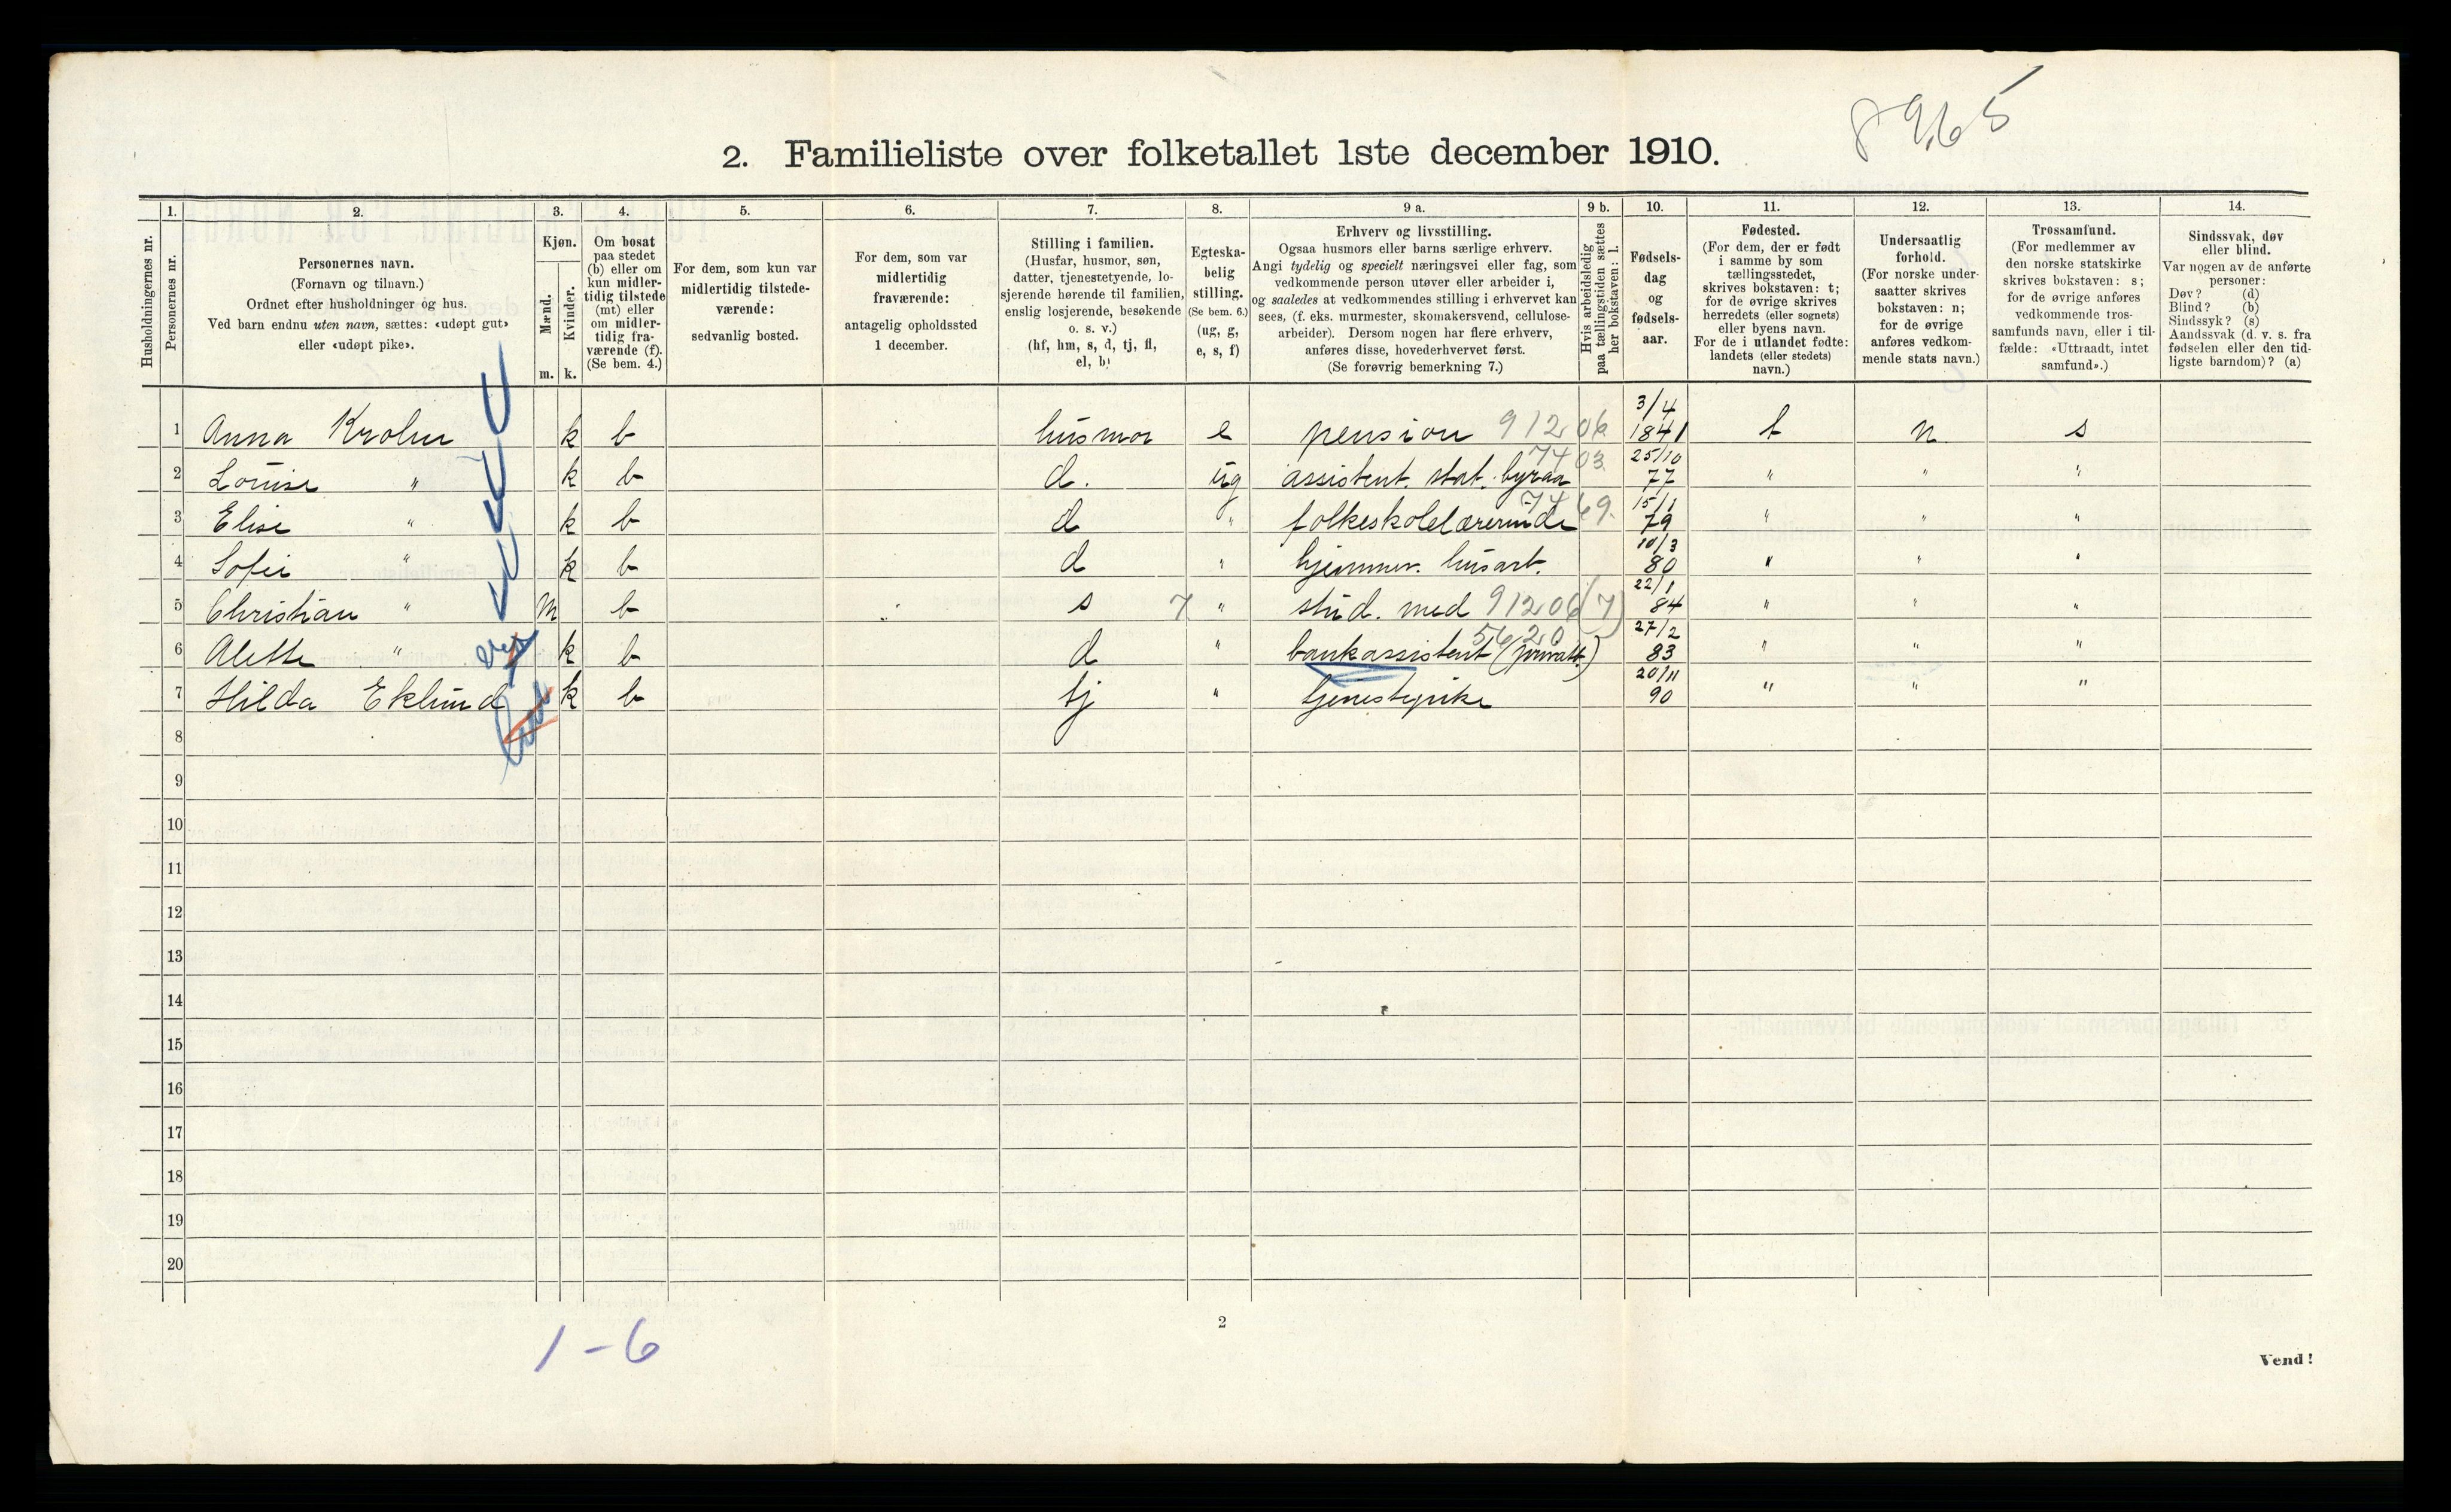 8965
2. Familieliste over folketallet 1ste december 1910.
Husholdningernes nr.
1. Personernes nr.
2. Personernes navn.
(Fornavn og tilnavn.)
Ordnet efter husholdninger og hus.
Ved barn endnu uten navn, sættes: «udøpt gut»
eller «udøpt pike».
3. Kjøn.
Mænd. m.
Kvinder. k.
4. Om bosat
paa stedet
(b) eller om
kun midler-
tidig tilstede
(mt) eller
om midler-
tidig fra-
værende (f).
(Se bem. 4.)
5. For dem, som kun var
midlertidig tilstede-
værende:
sedvanlig bosted.
6. For dem, som var
midlertidig
fraværende:
antagelig opholdssted
1 december.
7. Stilling i familien.
(Husfar, husmor, søn,
datter, tjenestetyende, lo-
sjerende hørende til familien,
enslig losjerende, besøkende
o. s. v.)
(hf, hm, s, d, tj, fl,
el, b)
8. Egteska-
belig
stilling.
(Se bem. 6.)
(ug, g,
e, s, f)
9 a. Erhverv og livsstilling.
Ogsaa husmors eller barns særlige erhverv.
Angi tydelig og specielt næringsvei eller fag, som
vedkommende person utøver eller arbeider i,
og saaledes at vedkommendes stilling i erhvervet kan
sees, (f. eks. murmester, skomakersvend, cellulose-
arbeider). Dersom nogen har flere erhverv,
anføres disse, hovederhvervet først.
(Se forøvrig bemerkning 7.)
9 b. Hvis arbeidsledig
paa tællingstiden sættes
her bokstaven: l.
10. Fødsels-
dag
og
fødsels-
aar.
11. Fødested.
(For dem, der er født
i samme by som
tællingsstedet,
skrives bokstaven: t;
for de øvrige skrives
herredets (eller sognets)
eller byens navn.
For de i utlandet fødte:
landets (eller stedets)
navn.)
12. Undersaatlig
forhold.
(For norske under-
saatter skrives
bokstaven: n;
for de øvrige
anføres vedkom-
mende stats navn.)
13. Trossamfund.
(For medlemmer av
den norske statskirke
skrives bokstaven: s;
for de øvrige anføres
vedkommende tros-
samfunds navn, eller i til-
fælde: «Uttraadt, intet
samfund».)
14. Sindssvak, døv
eller blind.
Var nogen av de anførte
personer:
Døv? (d)
Blind? (b)
Sindssyk? (s)
Aandssvak (d. v. s. fra
fødselen eller den tid-
ligste barndom)? (a)
1 Anna Krohn k b husmor e pension 91206 3/4 1841 t n s
2 Louise " k b d. ug assistent. stat. byraa 7403 25/10 77 " " "
3 Elise " k b d " folkeskolelærerinde 7469. 15/1 79 " " "
4 Sofie " k b d " hjemmev. husarb. 10/3 80 " " "
5 Christian " m b s 7 " stud. med 91206(7) 22/1 84 " " "
6 Alette " k b d " bankassistent (privatt.) 5620 27/2 83 " " "
7 Hilda Eklund k b tj " tjenestepike 20/11 90 " " "
8
9
10
11
12
13
14
15
16
17
18
19
20
2
1-6
Vend!